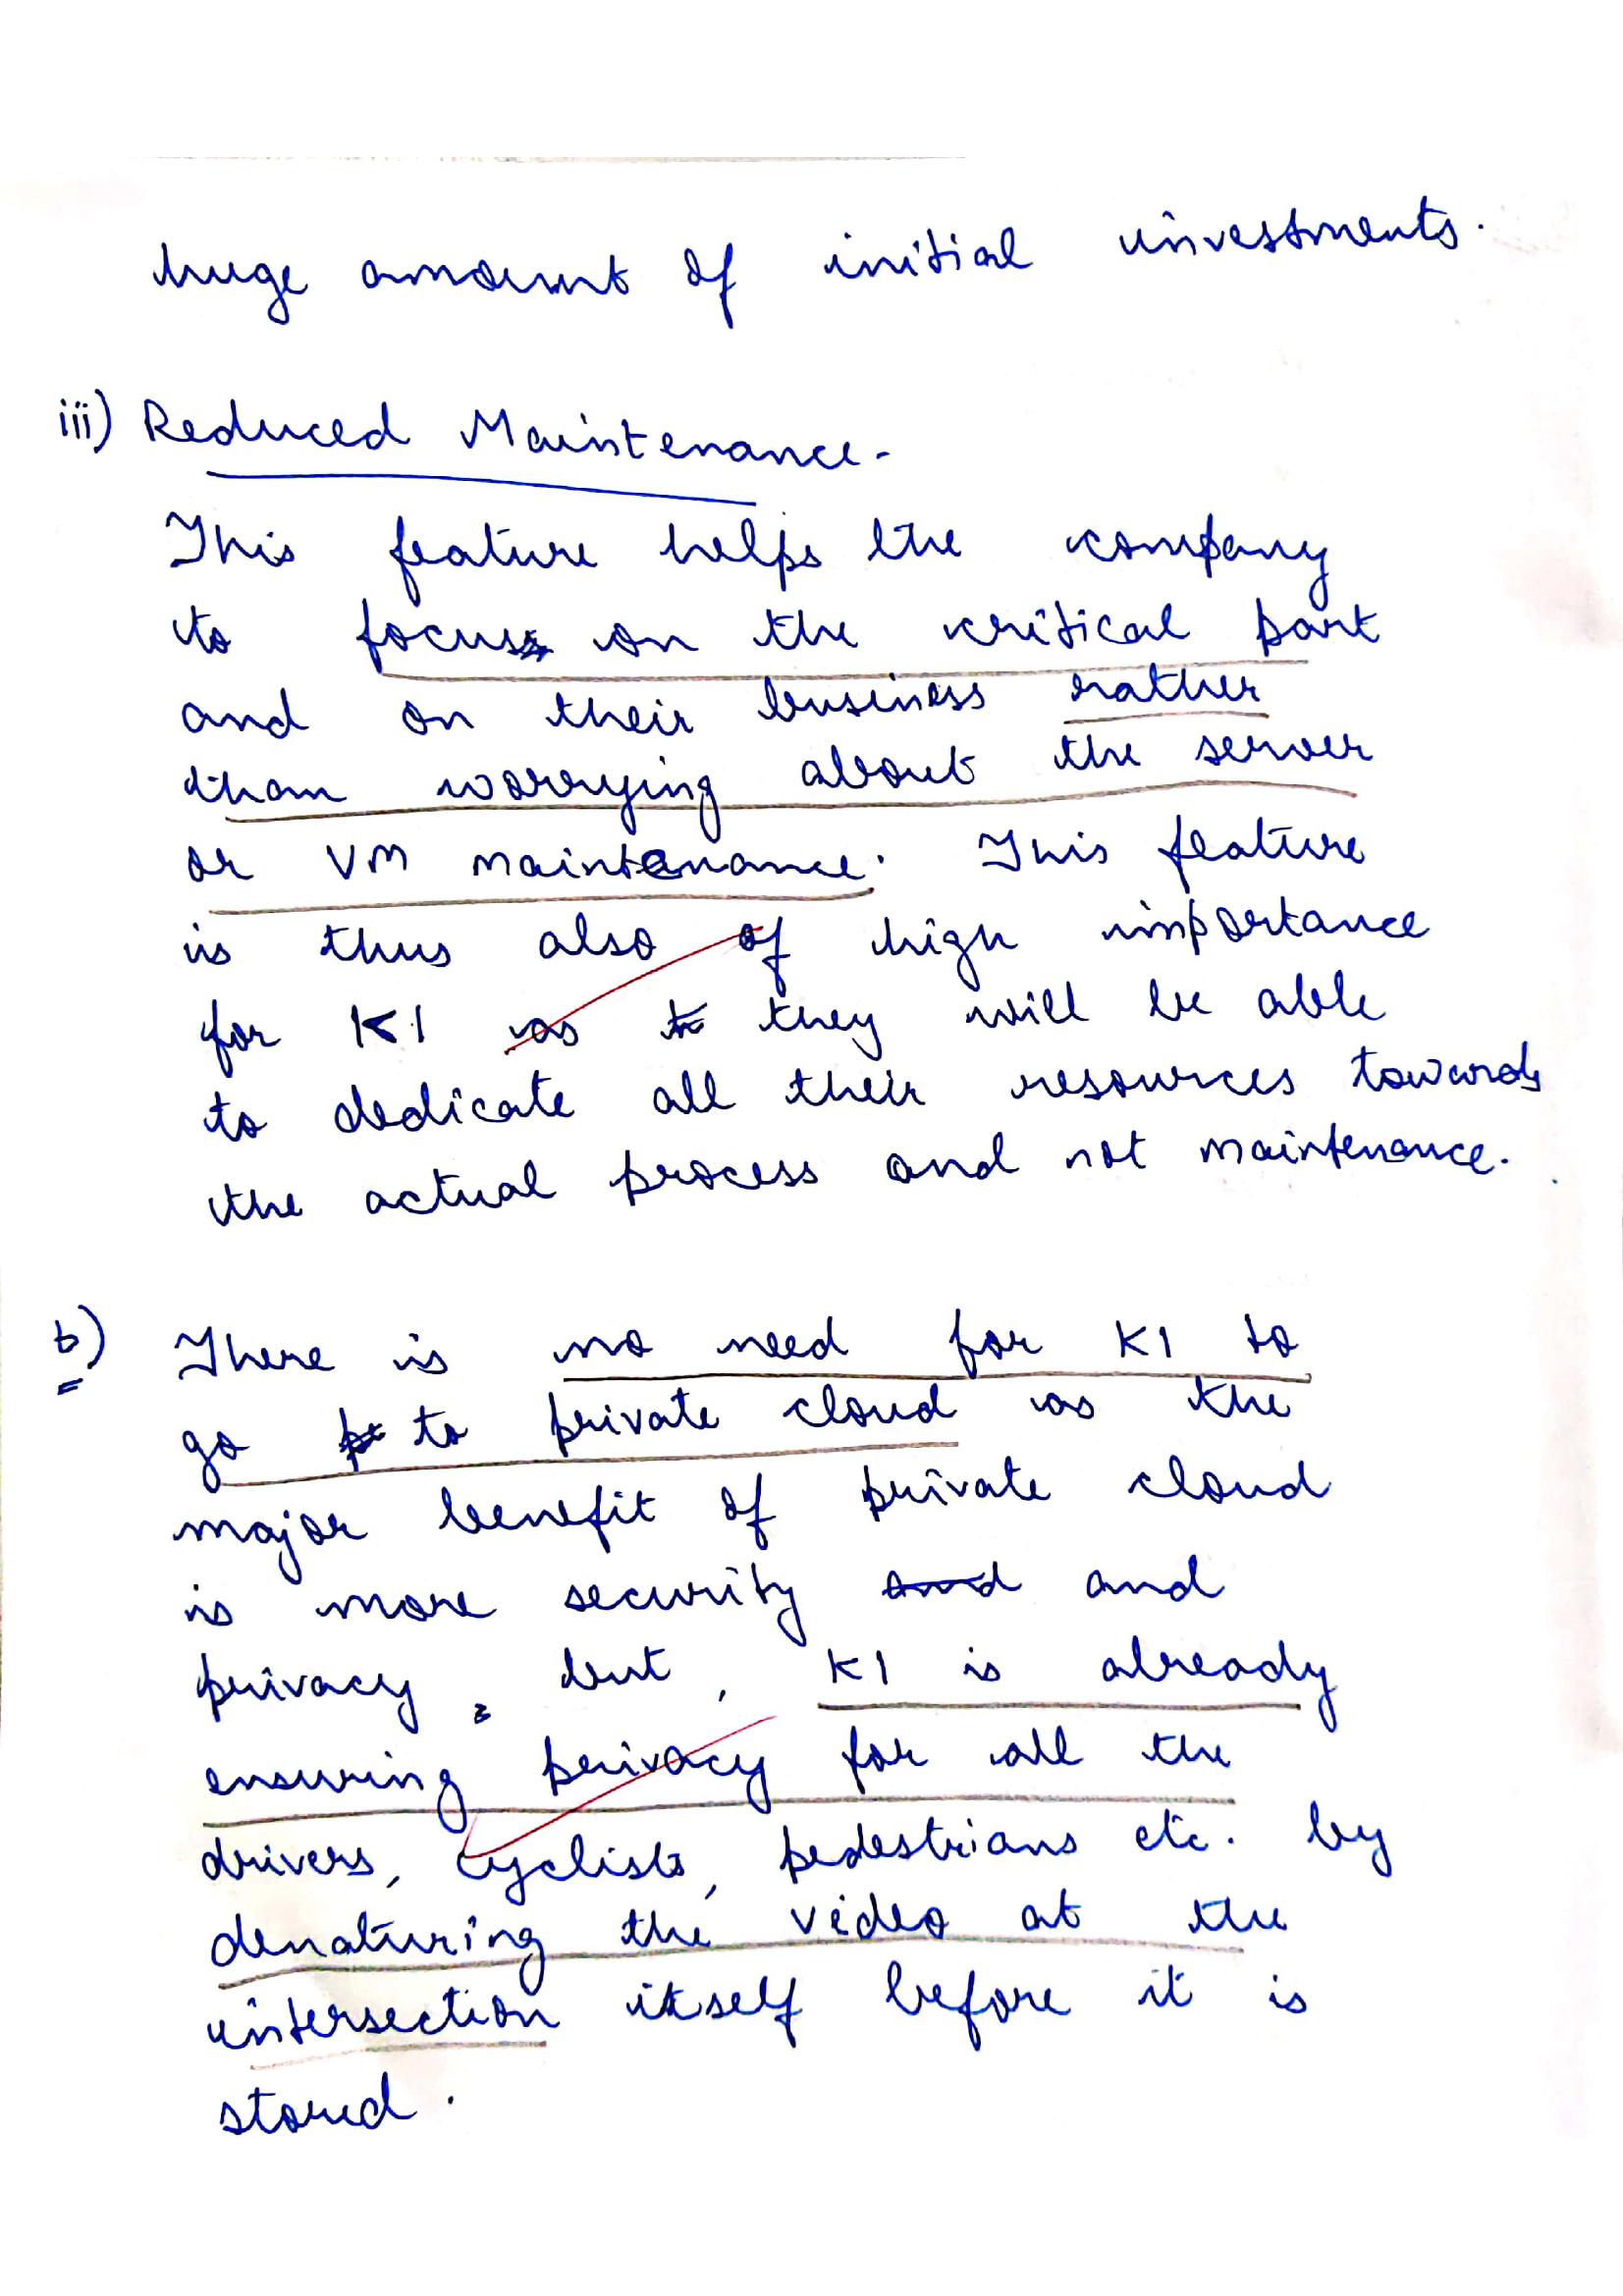 huge amount of initial investments.
iii) Reduced Maintenance.
This feature helps the company
to focus on the critical part
and on their business rather
than worrying about the server
or VM maintenance. This feature
is thus also of high importance
for K1 as they will be able
to dedicate all their resources towards
the actual process and not maintenance.
b) There is no need for K1 to
go to private cloud as the
major benefit of private cloud
is more security and and
privacy, but, K1 is already
ensuring privacy for all the
drivers, cyclists, pedestrians etc. by
denaturing the video at the
intersection itself before it is
stored.